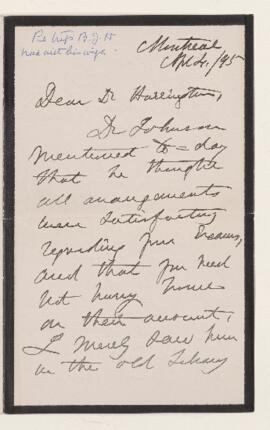 Re trip B.J.H
and with his wife.
Montreal
Apl 4./95
Dear Dr Harrington,
Dr Johnson
mentioned to=day
that he thought
all arrangements
were satisfactory
regarding your Exams,
and that you need
not hurry home
on their account,
I merely saw him
in the old Library